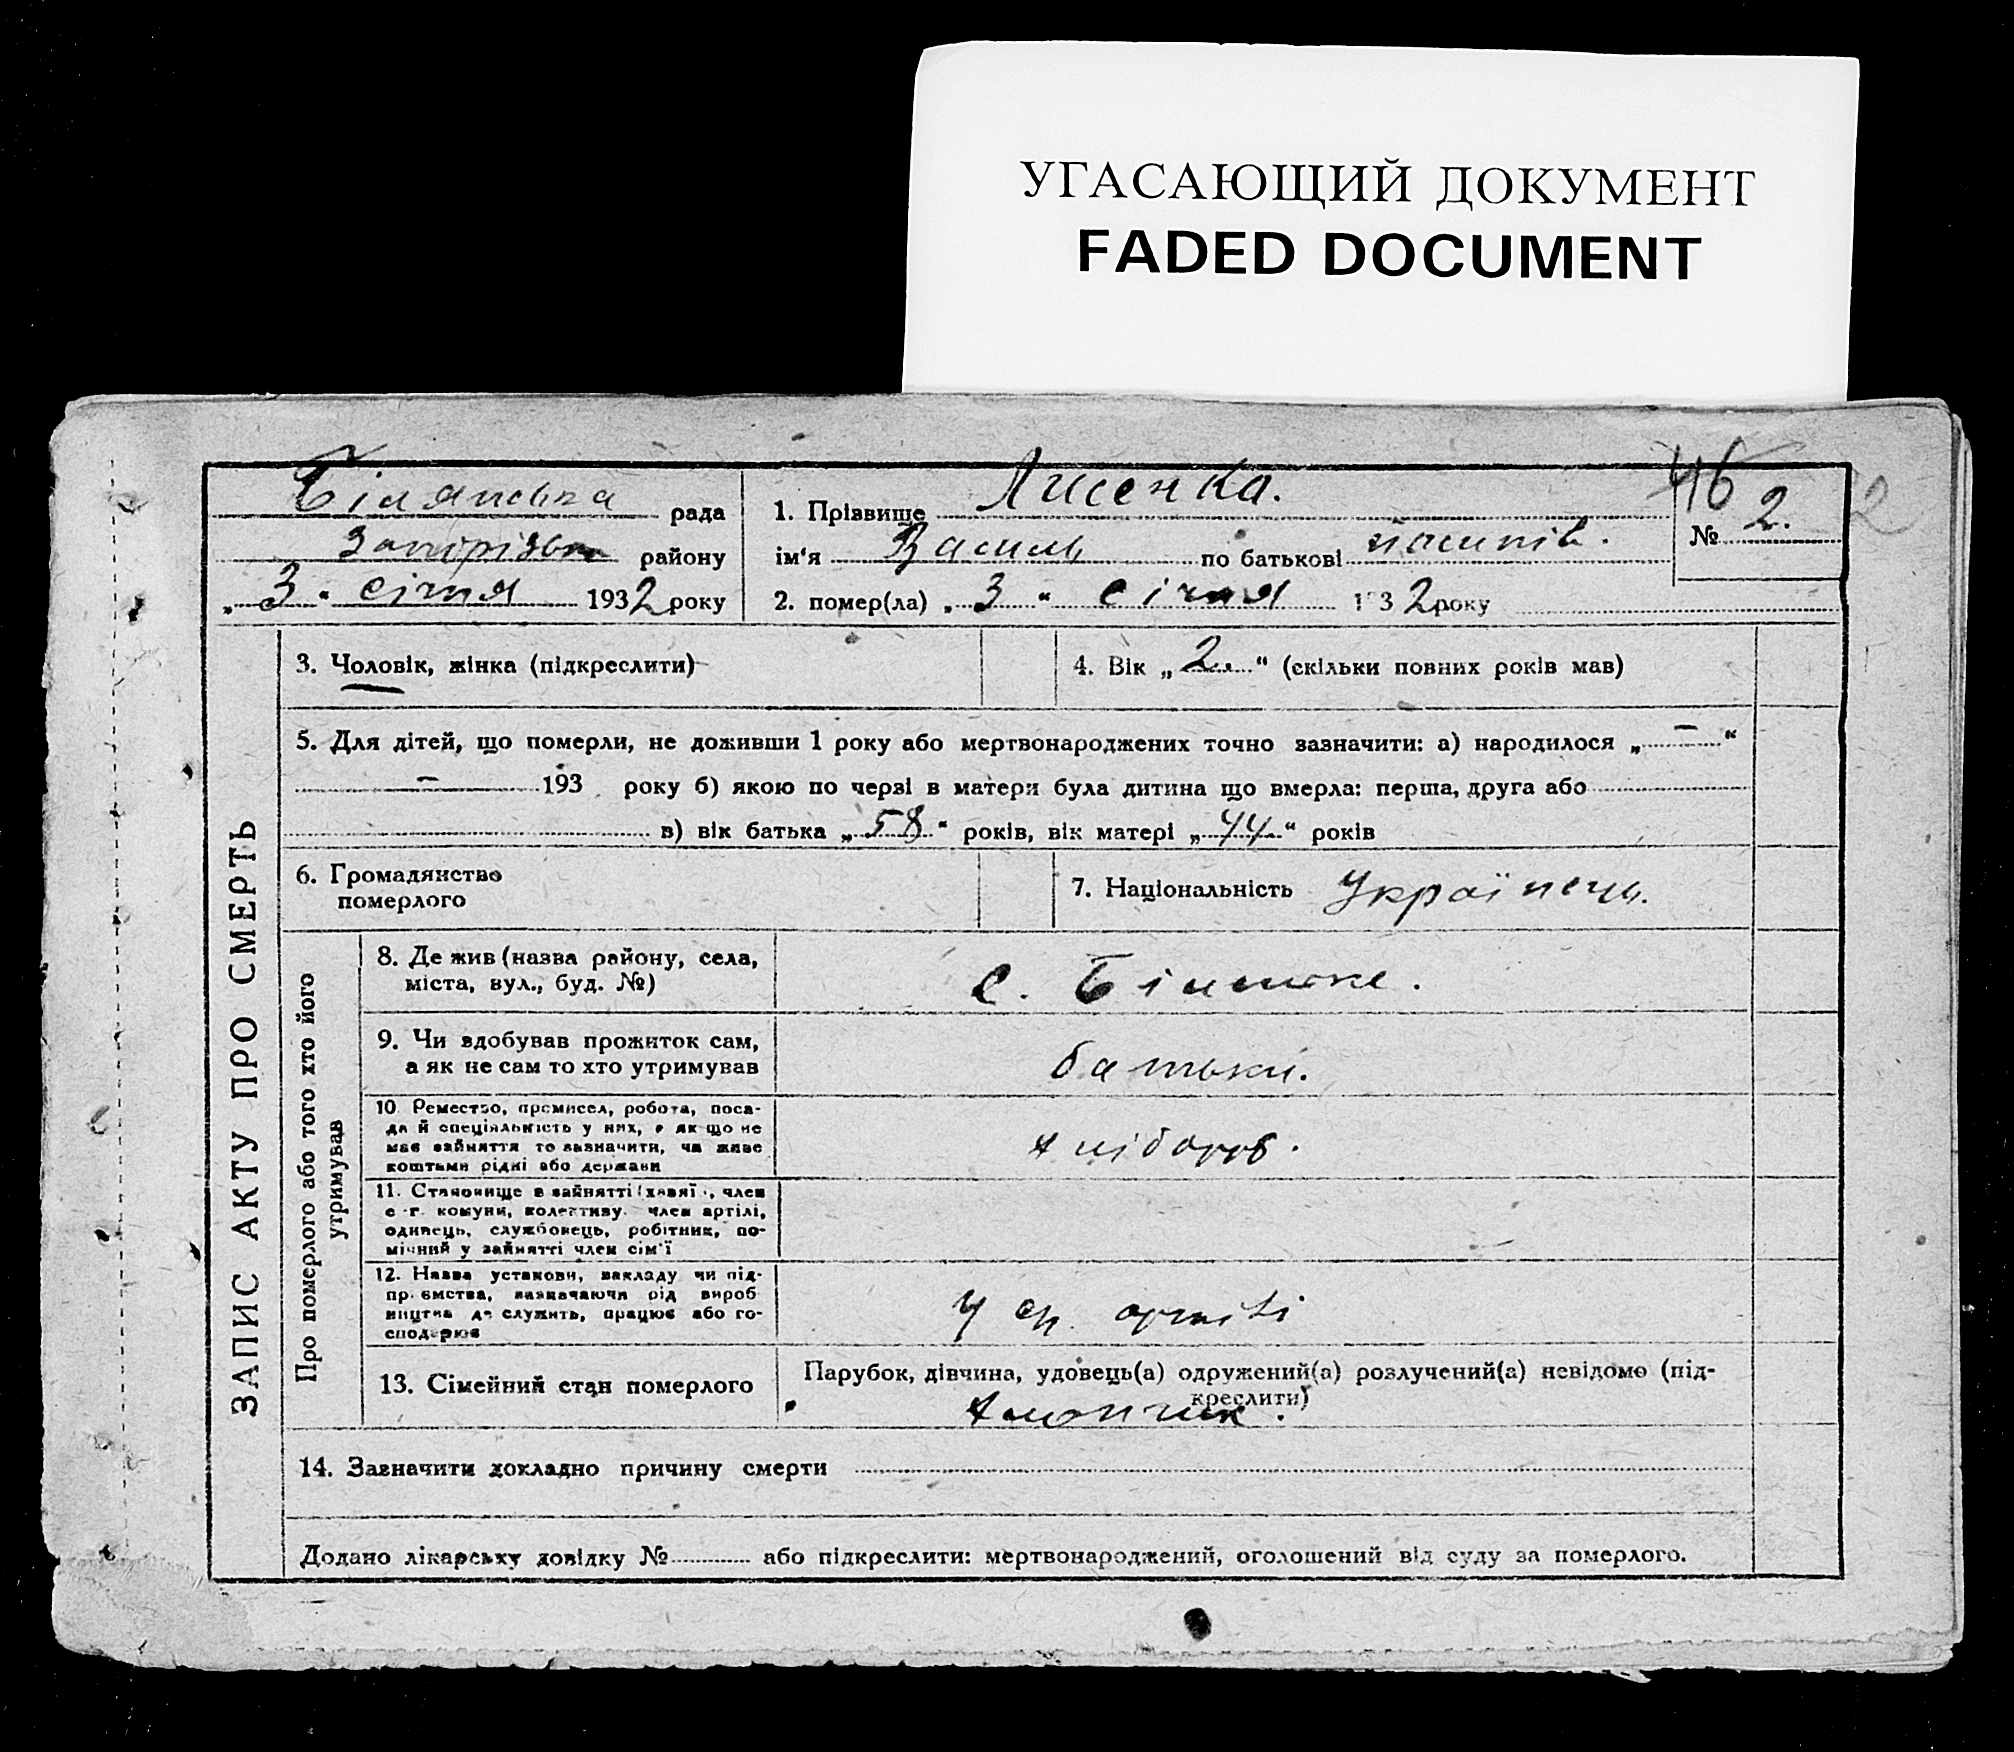 УГАСАЮЩИЙ ДОКУМЕНТ
FADED DOCUMENT
46 2
рада
району
„ 3 “ січня 1932 року
1. Прізвище Лисенка.
ім‘я Василь по батькові йосипів.
№ 2.
2. помер(ла) „ 3 “ січня 193 2 року
ЗАПИС АКТУ ПРО СМЕРТЬ
3. Чоловік, жінка (підкреслити)
4. Вік „ 2. “ (скільки повних років мав)
5. Для дітей, що померли, не доживши 1 року або мертвонароджених точно зазначити: а) народилося „ — “
— 193 року б) якою по черзі в матери була дитина що вмерла: перша, друга або
в) вік батька „ 58 “ років, вік матері „ 44 “ років
6. Громадянство
померлого
7. Національність Українець.
Про померлого або того хто його
утримував
8. Де жив (назва району, села,
міста, вул., буд. №)
с.
9. Чи здобував прожиток сам,
а як не сам то хто утримував
батьки.
10 Ремество, промисел, робота, поса-
да й спеціяльність у них, а як що не
має зайняття то зазначити, чи живе
коштами рідні або держави
хлібороб.
11. Становище в зайнятті (хазяї, член
с-г. комуни, колективу, член артілі,
одинець, службовець, робітник, по-
мічний у зайнятті член сім‘ї
12. Назва установи, закладу чи під-
приємства, зазначаючи рід вироб
ництва де служить, працює або го-
сподарює
У артілі
13. Сімейний стан померлого
Парубок, дівчина, удовець(а) одружений(а) розлучений(а) невідомо (під-
креслити)
хлопчик.
14. Зазначити докладно причину смерти
Додано лікарську довідку № або підкреслити: мертвонароджений, оголошений від суду за померлого.